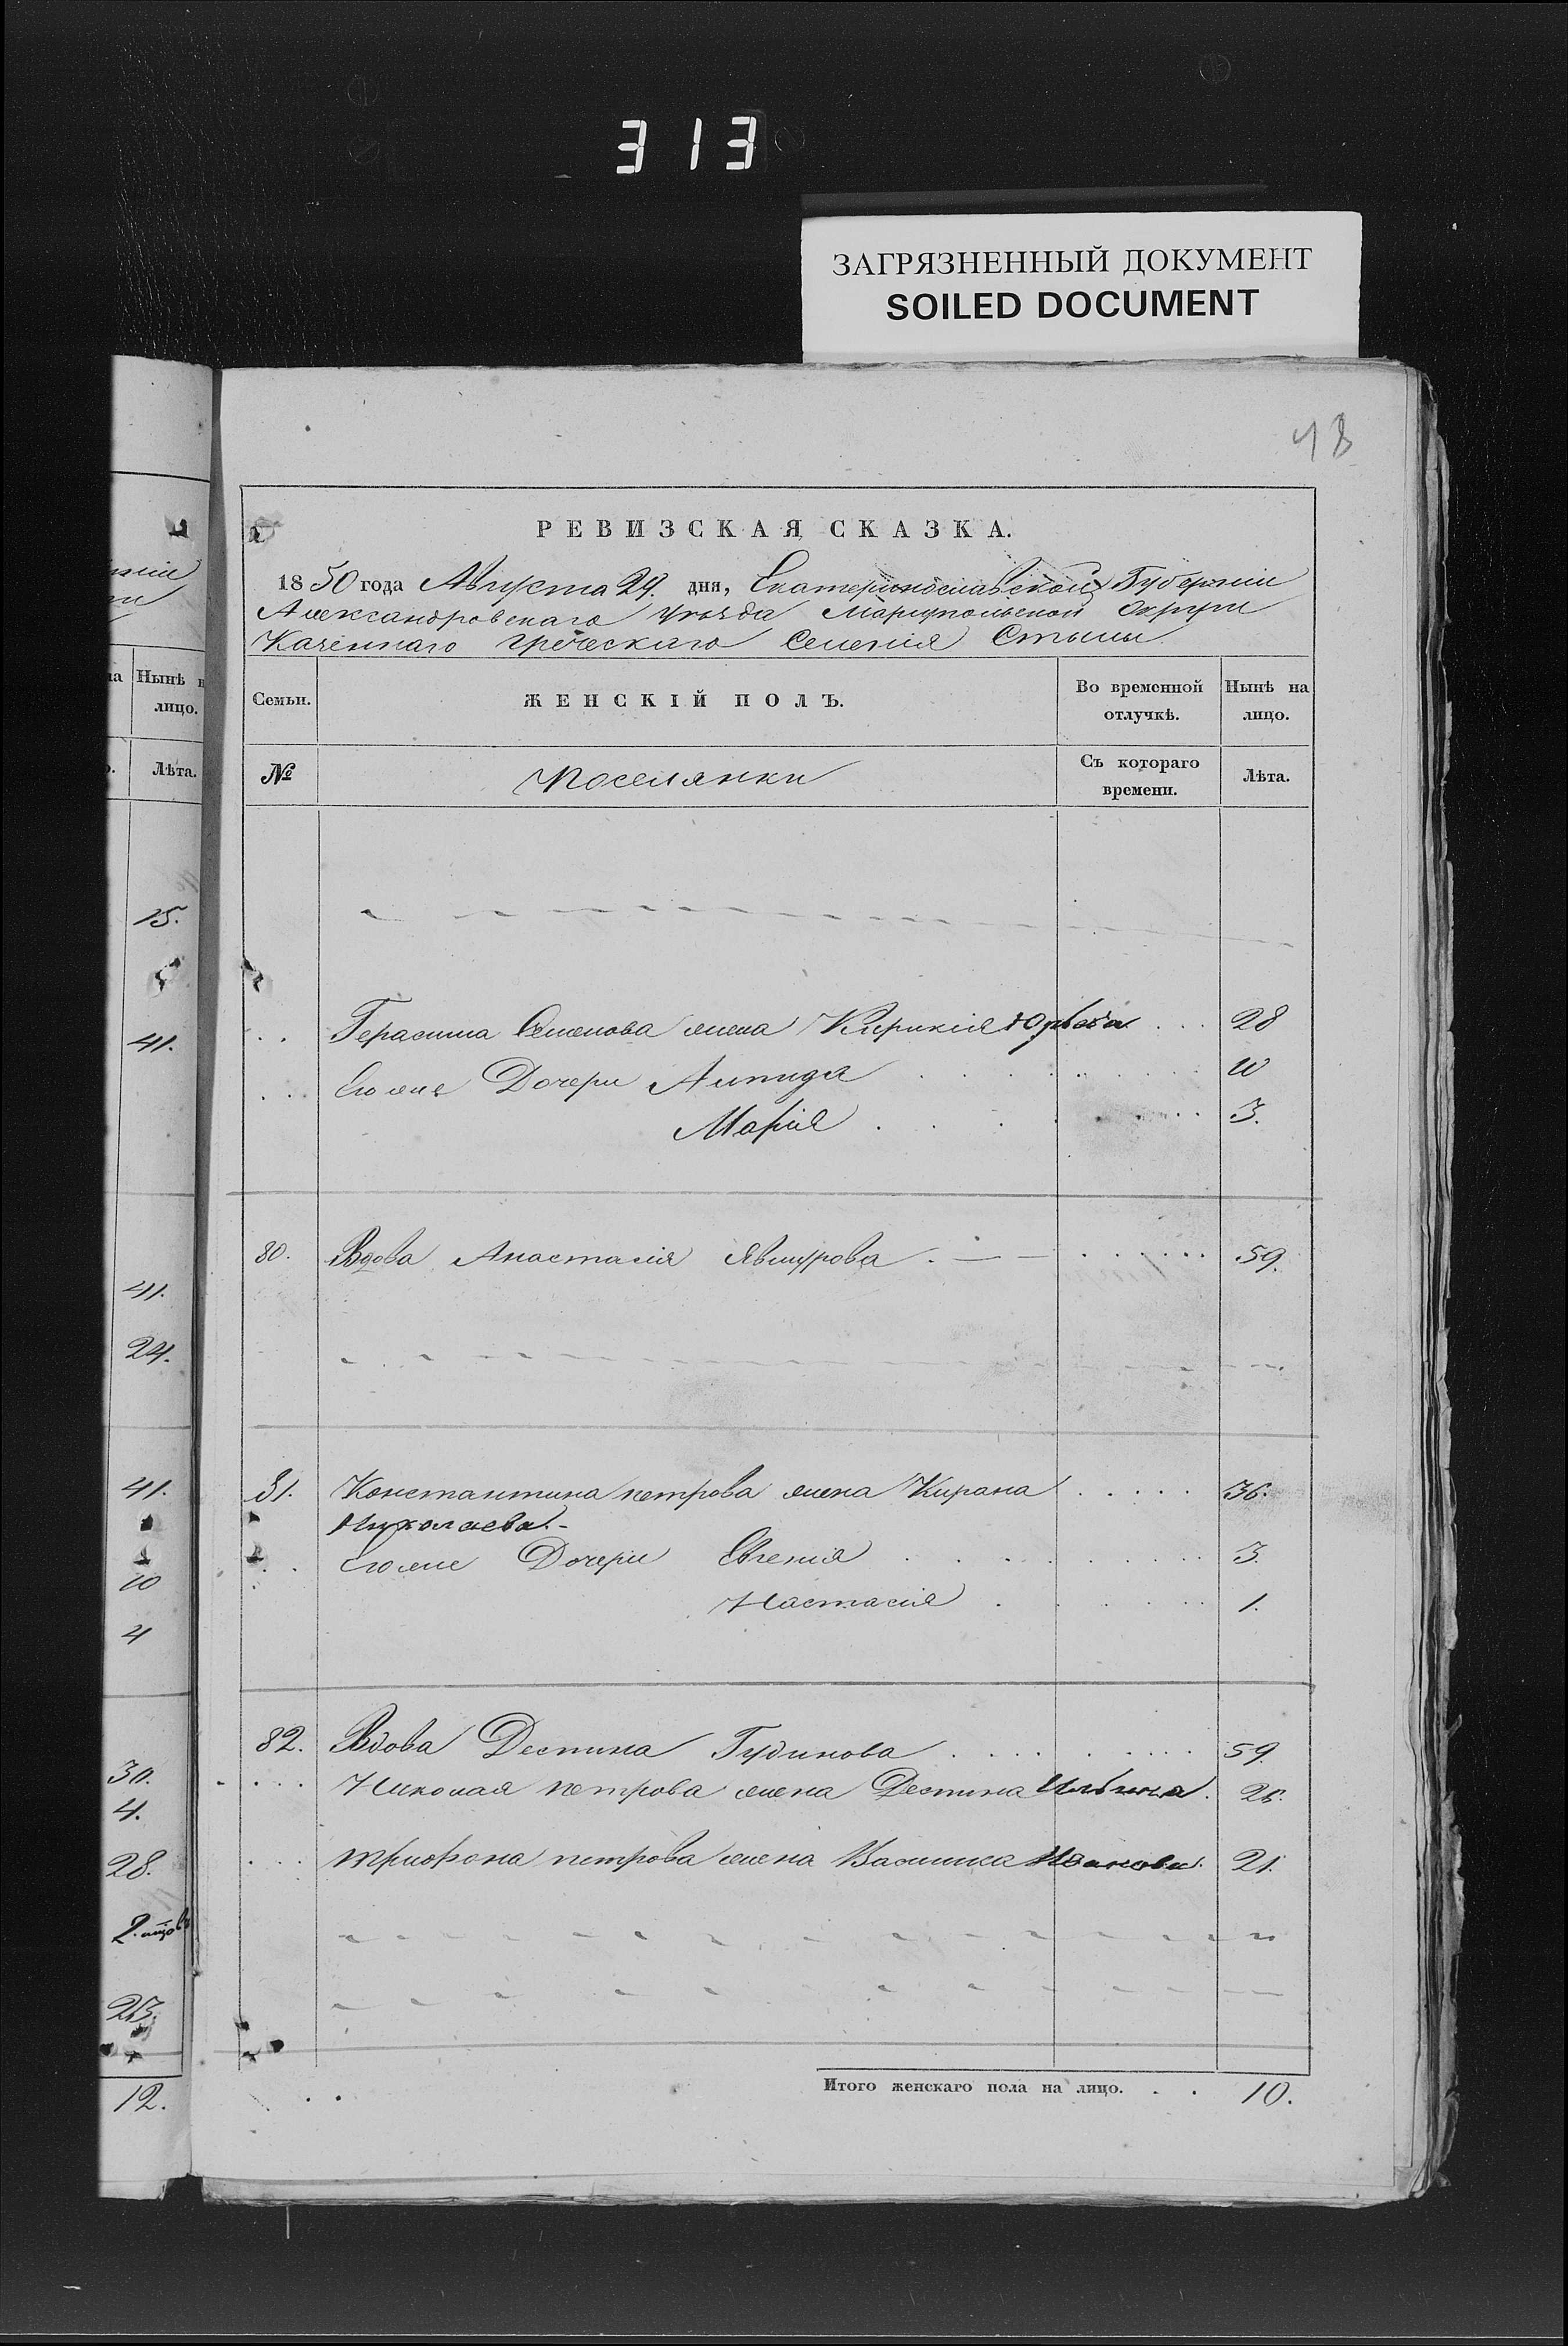 313
ЗАГРЯЗНЕННЫЙ ДОКУМЕНТ
SOILED DOCUMENT
48
РЕВИЗСКАЯ СКАЗКА.
1850 года Августа 29. дня, Екатеринославской Губернiи
Александровскаго уѣзда Марiупольской округи
Казеннаго греческаго Селенiя Стылы
Семьи.
ЖЕНСКІЙ ПОЛЪ.
Во временной отлучкѣ.
Нынѣ на лицо.
№
Поселянки
Съ котораго времени.
Лѣта.
Герасима Семенова жена Кирикiя Юрьева 28
Его же Дочери 10
Марiя 3.
80. Вдова Анастасiя Явшурова 59.
81. Константина петрова жена Кирана 36.
Николаева.
Его же Дочери Евгенiя 3.
Настасiя 1.
82. Вдова Деспина Гудинова 59.
Николая петрова жена Деспина Ильина. 26.
трифона петрова жена Василика Иванова. 21.
Итого женскаго пола на лицо. . . 10.
Нынѣ
лицо.
Лѣта.
15.
41.
41.
24.
41.
10
4
30.
4.
28.
23.
12.